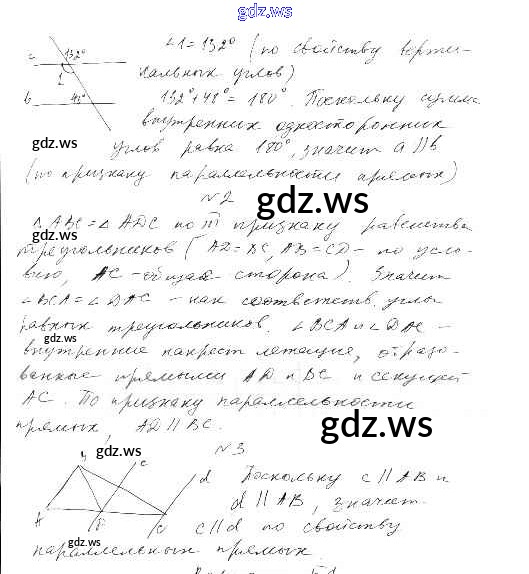 gdz.ws
a 132° ∠1 = 132° (по свойству верти-
1 кальных углов)
b 48° 132° + 48° = 180°. Поскольку сумма
внутренних односторонних
gdz.ws углов равна 180°, значит a || b
(по признаку параллельности прямых)
№2 gdz.ws
△ABC = △ADC по III признаку равенства
треугольников (AD = BC, AB = CD - по усло-
gdz.ws
вию, AC - общая сторона). Значит
∠BCA = ∠DAC - как соответств. углы
равных треугольников. ∠BCA и ∠DAC -
gdz.ws
внутренние накрест лежащие, образо-
ванные прямыми AD и BC и секущей
AC. По признаку параллельности
прямых, AD || BC. gdz.ws
№3
gdz.ws
c d Поскольку c || AB и
d || AB, значит
A c || d по свойству
gdz.ws
параллельных прямых.